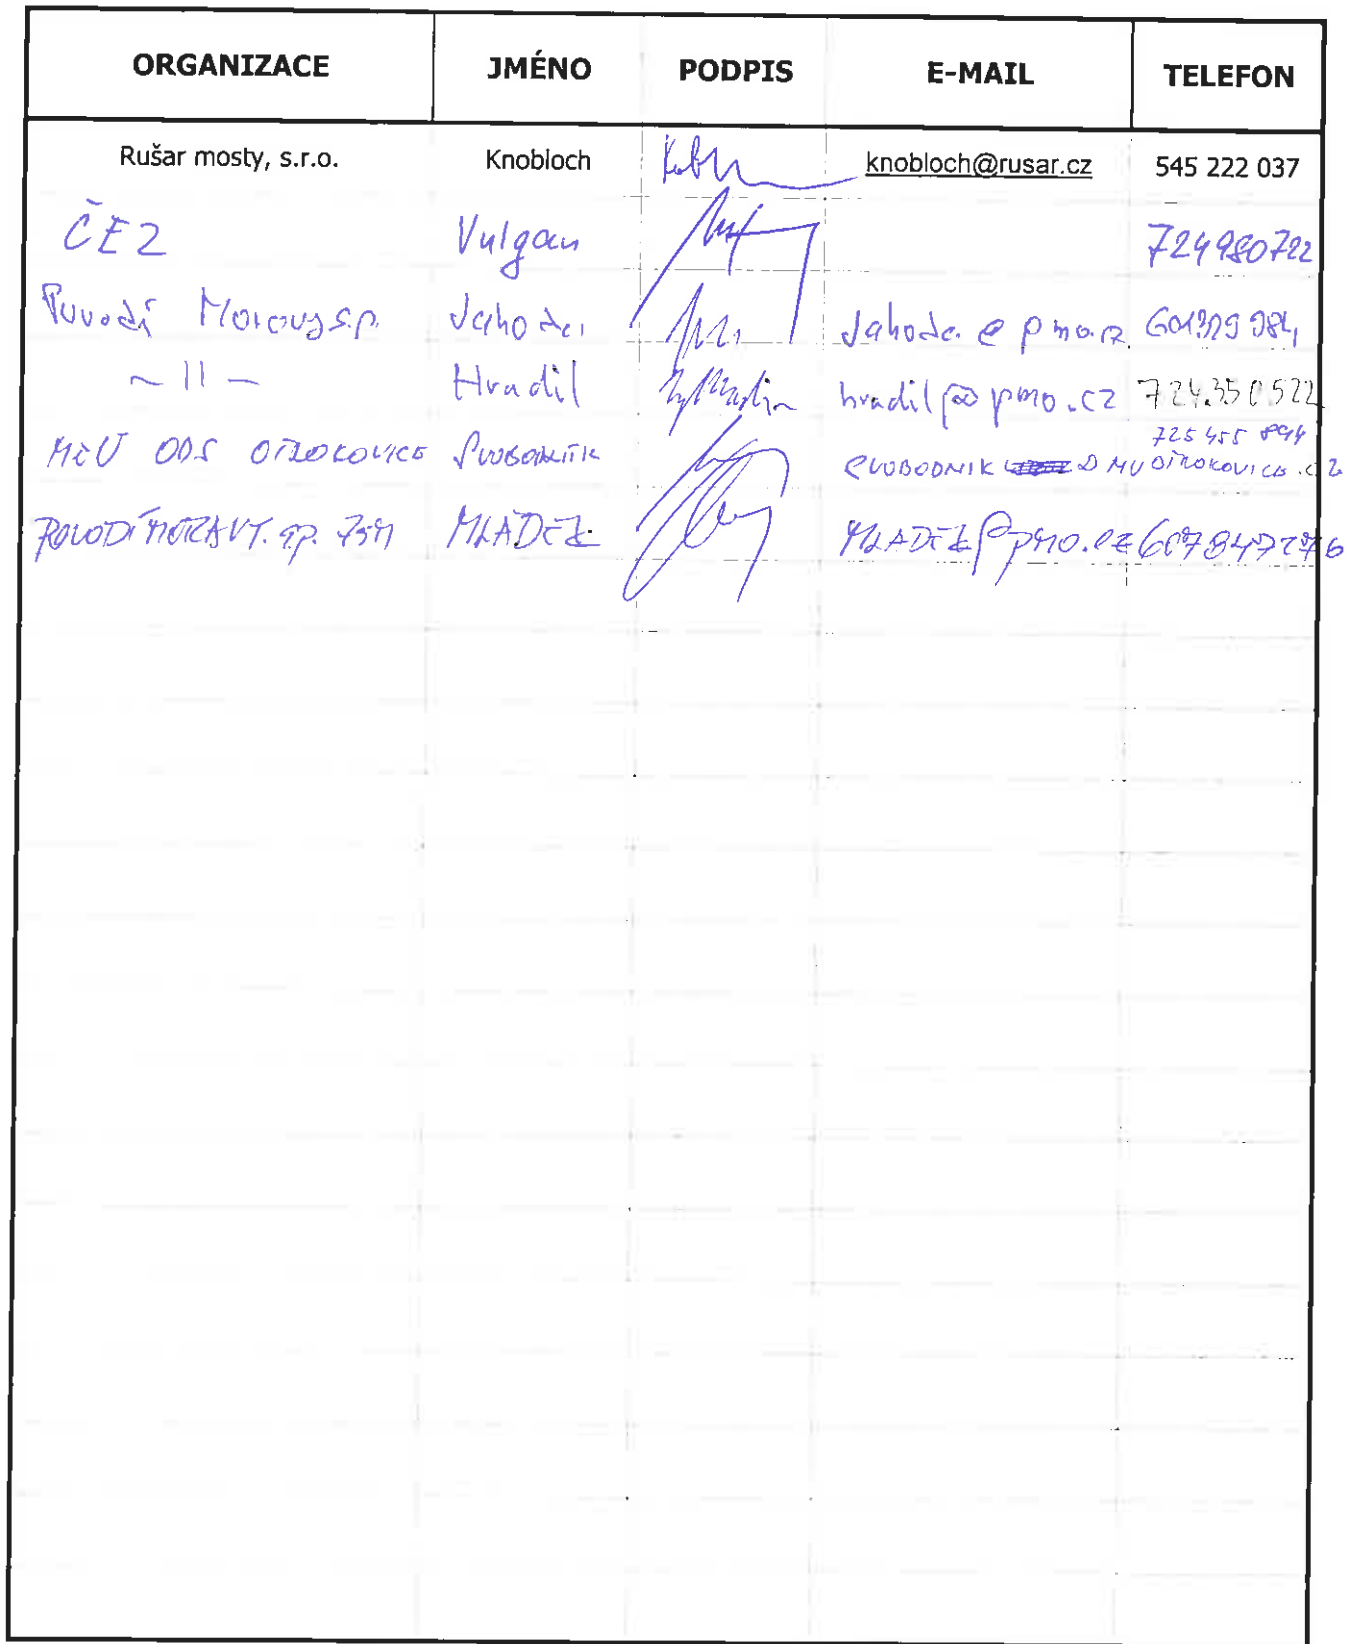 ORGANIZACE JMÉNO PODPIS E-MAIL TELEFON
Rušar mosty, s.r.o. Knobloch knobloch@rusar.cz 545 222 037
ČEZ Vulgan 724980722
Povodí Moravy s.p. Jahoda Jahoda@pmo.cz 601329984
~ 11 - Hradil hradil@pmo.cz 724.350522
MěÚ ODS OTROKOVICE SVOBODNÍK SVOBODNIK @ MUOTROKOVICE.CZ 725 455 894
POVODÍ MORAVY. s.p. MLÁDEK MLADEK@pmo.cz 607847276